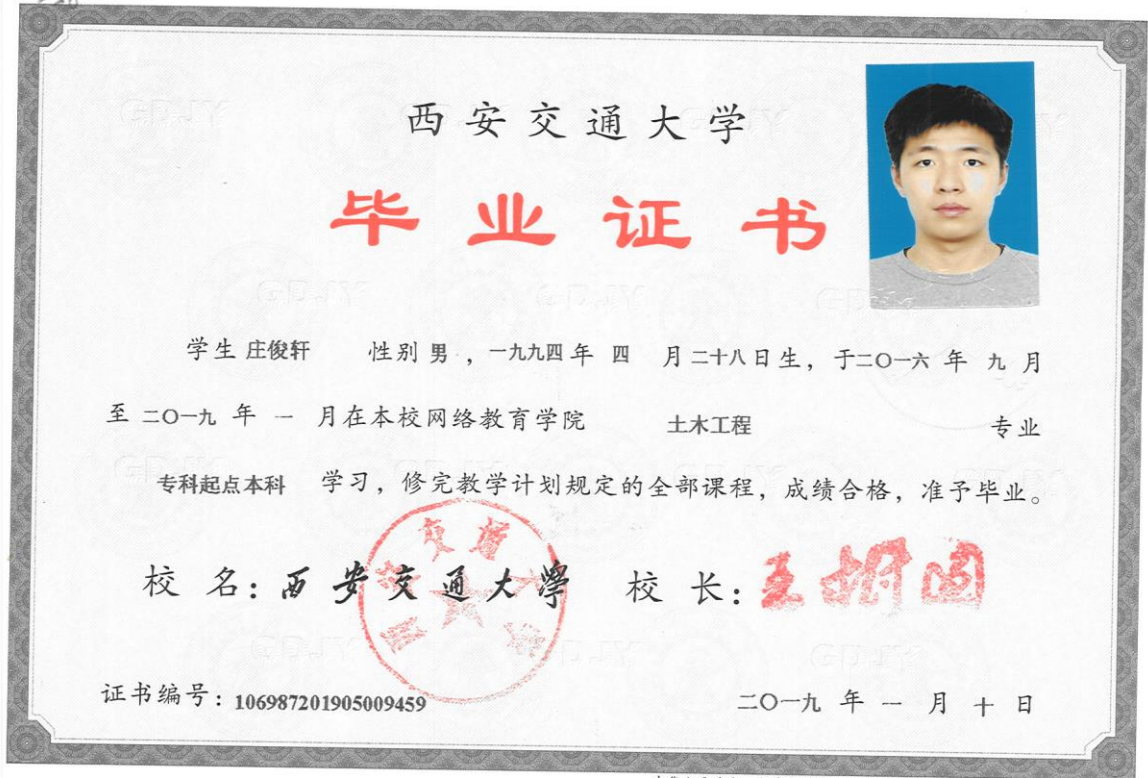 西安交通大学
毕业证书
学生 庄俊轩 性别 男，一九九四年 四 月二十八日生，于二〇一六 年 九 月
至 二〇一九 年 一 月在本校网络教育学院 土木工程 专业
专科起点本科 学习，修完教学计划规定的全部课程，成绩合格，准予毕业。
校 名：西安交通大學 校 长：王树国
证书编号：106987201905009459 二〇一九 年 一 月 十 日